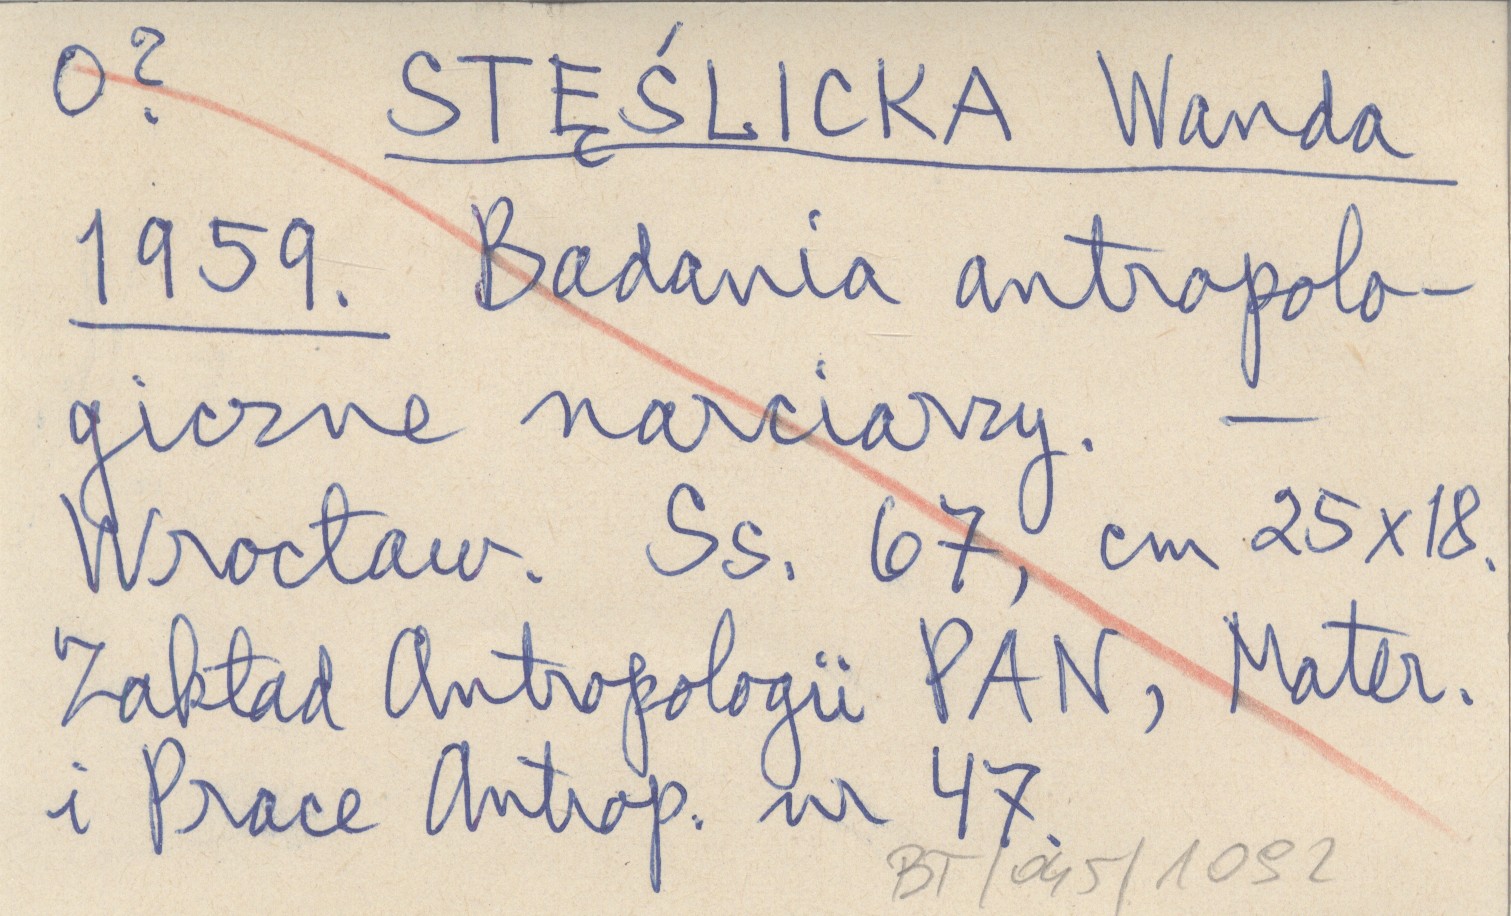 0? STĘŚLICKA Wanda
1959. Badania antropolo-
giczne narciarzy. —
Wrocław. Ss. 67, cm 25x18.
Zakład Antropologii PAN, Mater.
i Prace Antrop. nr 47.
BT/045/1092